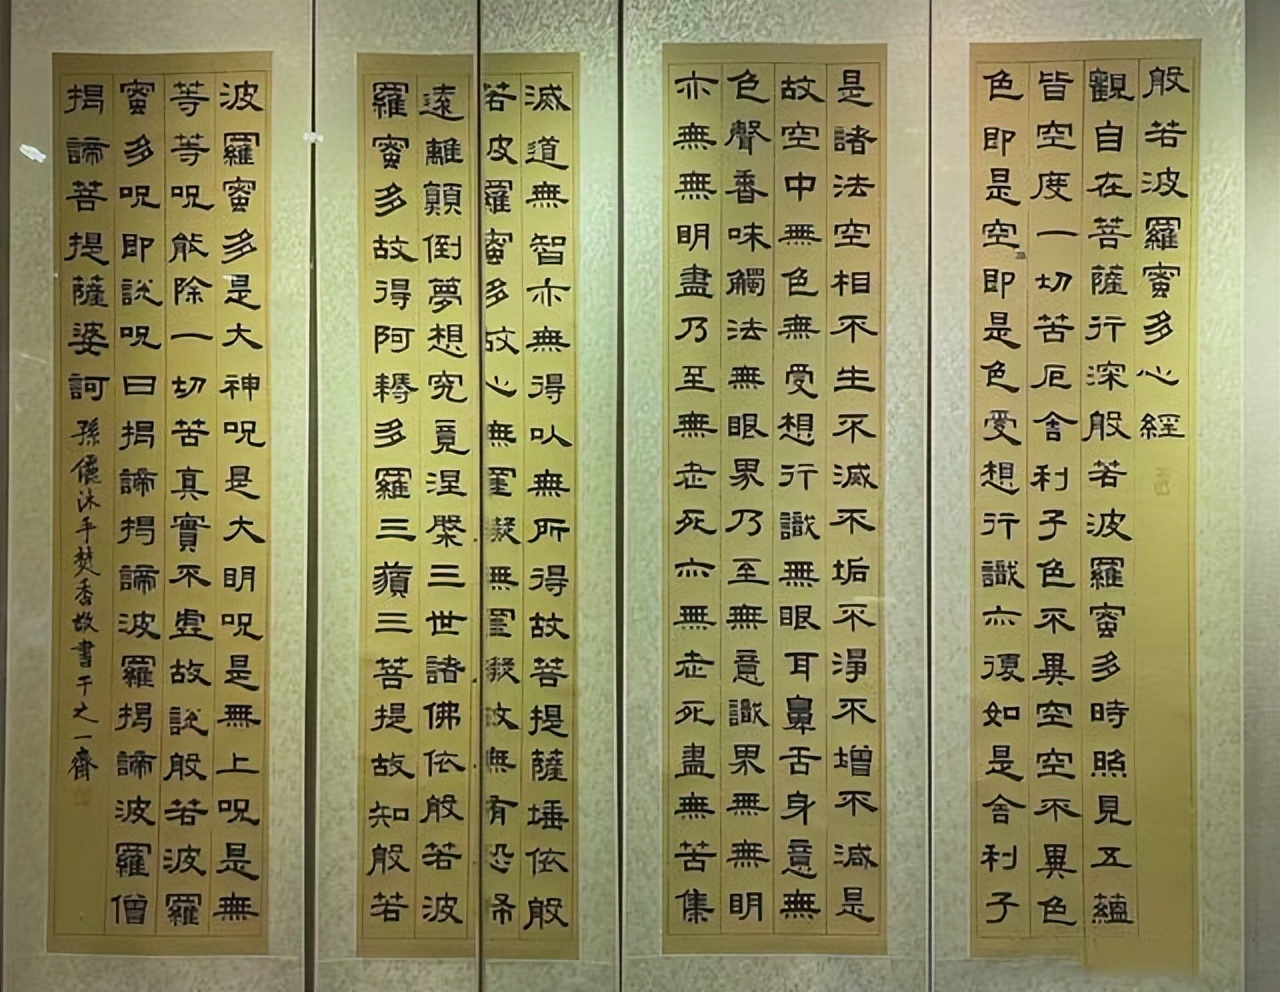 般若波羅蜜多心經
觀自在菩薩行深般若波羅蜜多時照見五蘊
皆空度一切苦厄舍利子色不異空空不異色
色即是空即是色受想行識亦復如是舍利子
是諸法空相不生不滅不垢不淨不增不減是
故空中無色無受想行識無眼耳鼻舌身意無
色聲香味觸法無眼界乃至無意識界無無明
亦無無明盡乃至無老死亦無老死盡無苦集
滅道無智亦無得以無所得故菩提薩埵依般
若波羅蜜多故心無罣礙無罣礙故無有恐怖
遠離顛倒夢想究竟涅槃三世諸佛依般若波
羅蜜多故得阿耨多羅三藐三菩提故知般若
波羅蜜多是大神呪是大明呪是無上呪是無
等等呪能除一切苦真實不虛故說般若波羅
蜜多呪即說呪曰揭諦揭諦波羅揭諦波羅僧
揭諦菩提薩婆訶 孫儷沐手焚香書于之一齋